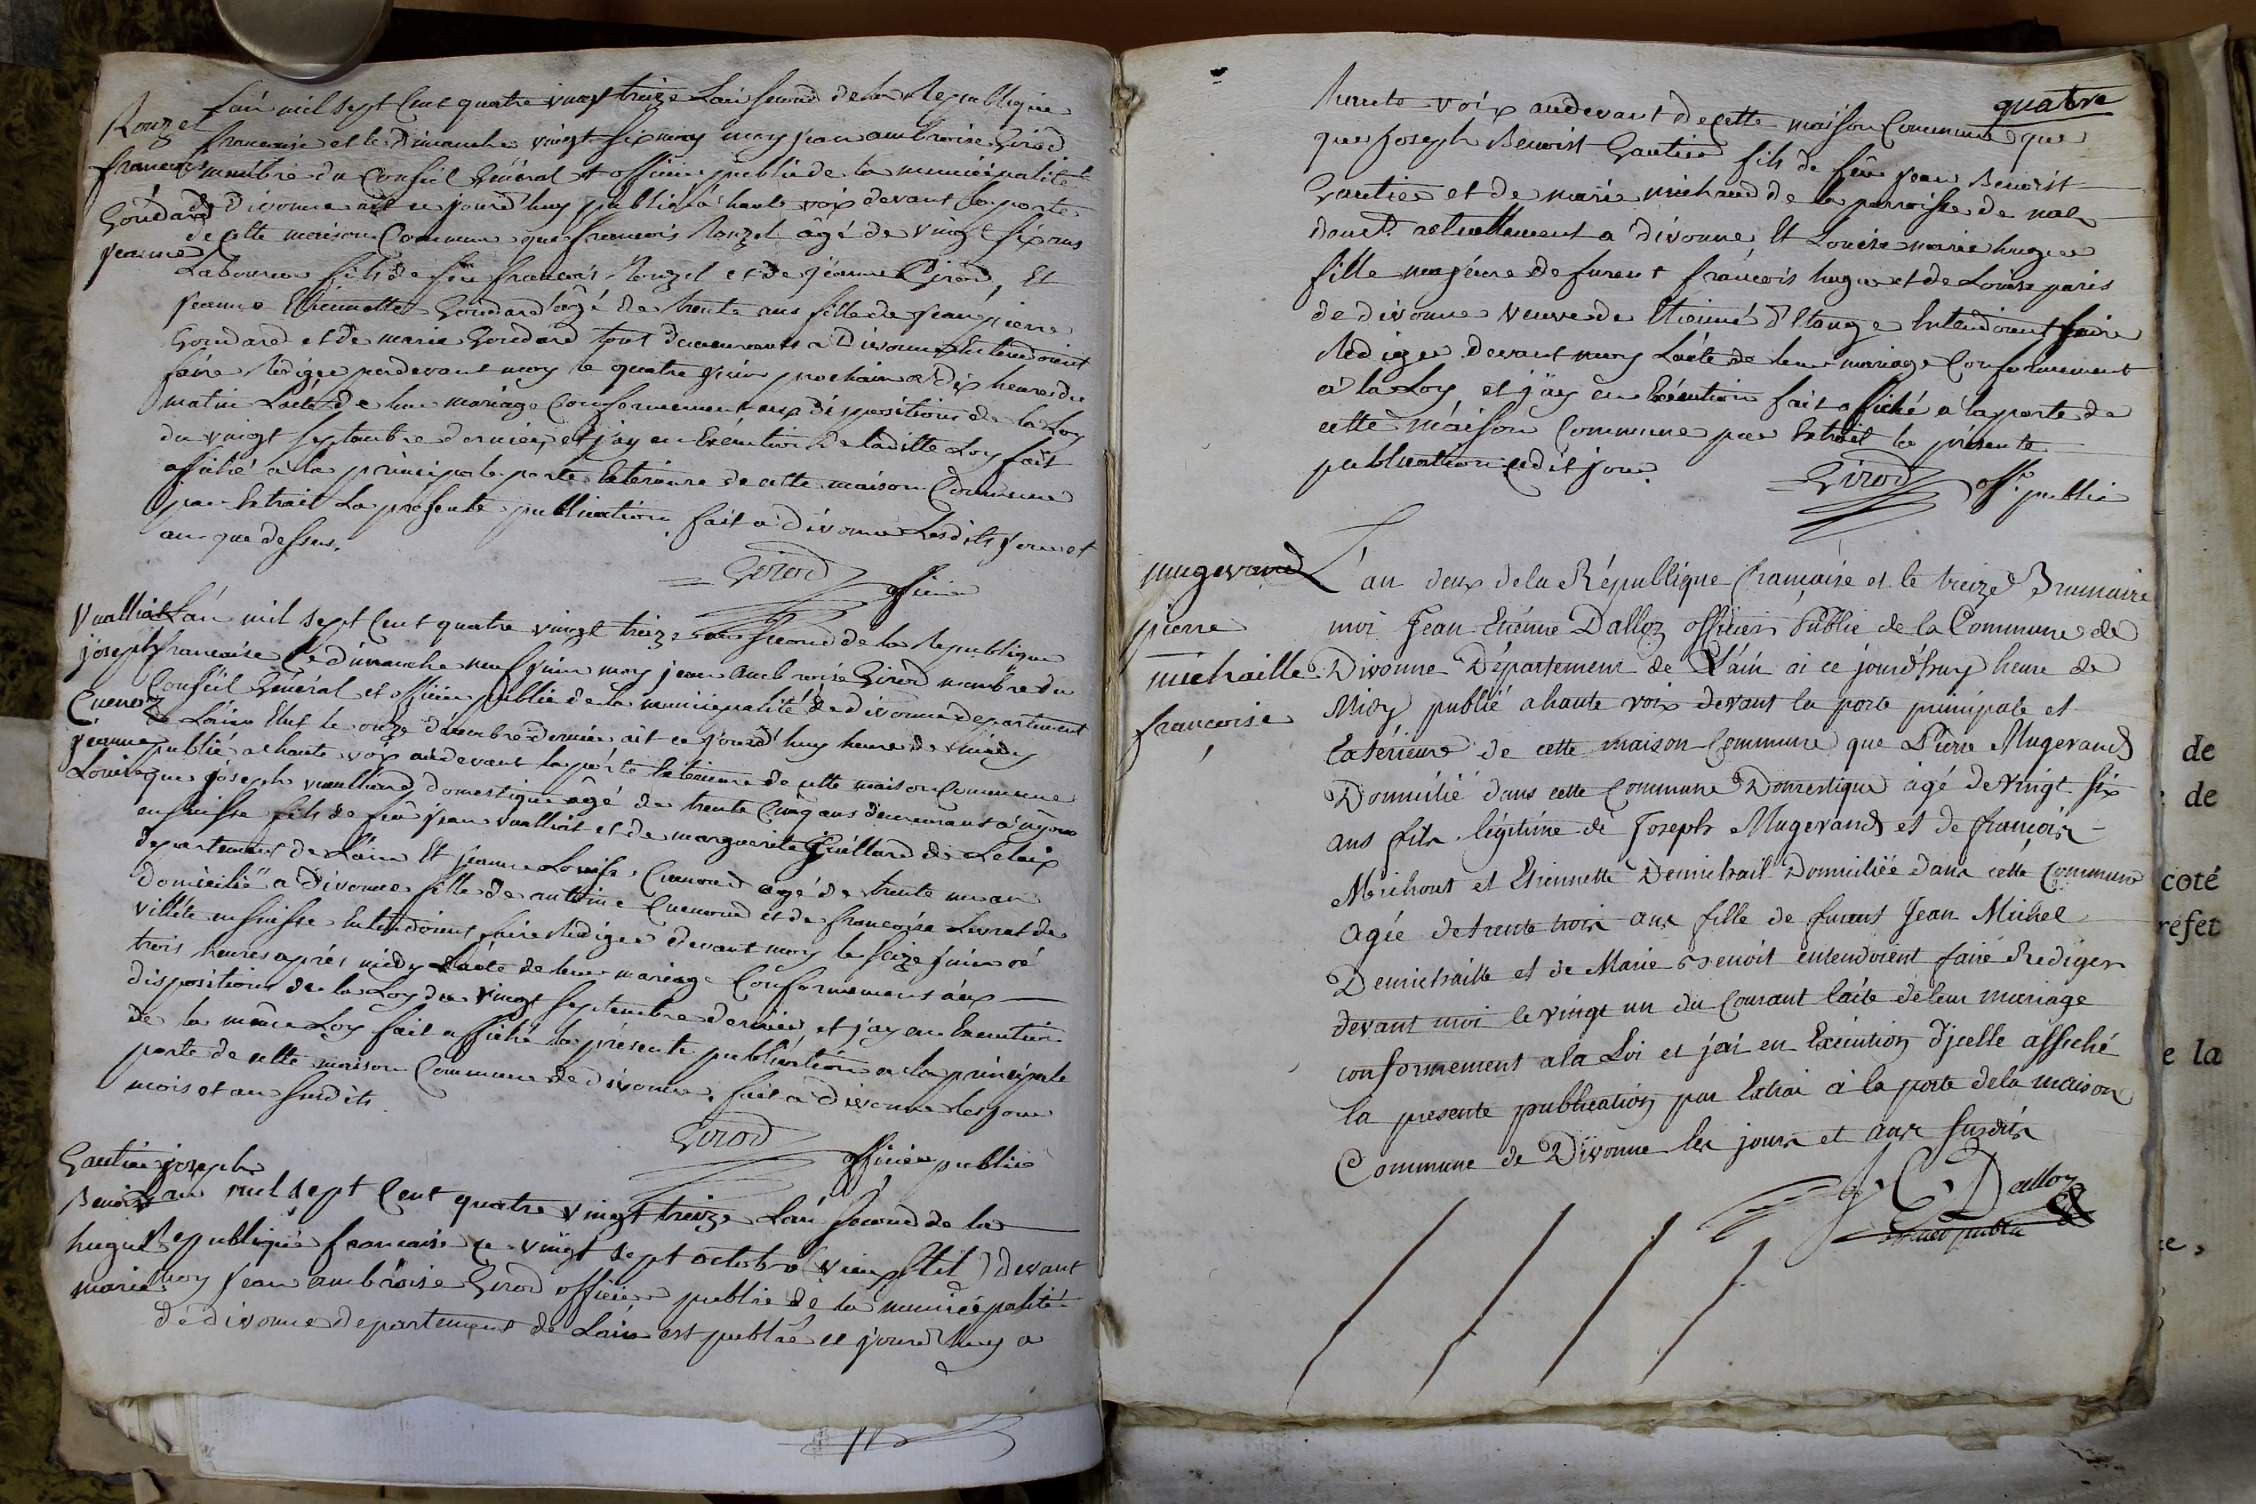 L'an mil sept Cent quatre vingt treize L'an second de la Republique
Rouzet
francaise et le dimanche vingt six may moy jean ambroise Girod
francois
membre du Conseil Général et officier public de la municipalité
Goudard
de divonne ait ce jourd'huy publié à haute voix devant la porte
jeanne
de cette maison Commune que francois Rouzet âgé de vingt six ans
Laboureur fils de feu francois Rouzet et de jeanne Girod, Et
jeanne Etiennette Goudard âgé de trente ans fille de jean pierre
Goudard et de marie Goudard tout demeurants a Divonne Entendoient
faire Rédiger perdevant moy le quatre juin prochain a dix heures du
matin L'acte de leur mariage Conformement aux dispositions de la Loy
du vingt septembre dernier, et j'ay en Exécution de laditte Loy fait
affiché a la principale porte Exterieure de cette maison Commune
par Extrait La presente publication, fait a divonne Lesdits jour et
an que dessus.
Girod officier
Vualliat
L'an mil sept Cent quatre vingt treize an second de la Republique
joseph
francaise Le dimanche neuf juin moy jean ambroise Girod membre du
Conseil Général et officier public de la municipalité de divonne departement
Cuenod
de L'ain Elut le onze decembre dernier ait ce jourd'huy heure de midy
jeanne
publié a haute voix audevant la porte Exterieure de cette maison Commune
Louise
que joseph vualliand domestique âgé de trente Cinq ans demeurant a
en suisse fils de feu jean vualliat et de marguerite de
departement de L'ain Et jeanne Louise Cuenoud agé de trente un an
domicilié a divonne fille de antoine Cuenoud et de francoise de
villete en suisse Entendoient faire Rédiger devant moy le seize juin
trois heures aprés midy L'acte de leur mariage Conformement aux
dispositions de la Loy du vingt septembre dernier et j'ay en Exécution
de la même Loy fait affiché la présente publication a la principale
porte de cette maison Commune de divonne, fait a divonne les jour
mois et an susdits
Girod officier public
Gautier joseph
Benoist
L'an mil sept Cent quatre vingt treize L'an second de la
hugue
Republique francaise ce vingt sept octobre (vieux stil) devant
marie
moy jean ambroise Girod officier public de la municipalité
de divonne departement de L'ain est publié ce jourd'huy a
quatre
haute voix audevant de cette maison Commune que
que joseph Benoist Gautier fils de feu jean Benoist
Gautier et de marie michaud de la parroisse de
actuellement a divonne, Et Louise marie hugue
fille majeure de furent francois hugue et de Louise paris
de divonne veuve de Etienne d'Etange Entendoient faire
Rediger devant moy L'acte de leur mariage Conformement
a la Loy, et j'ay en Exécution fait affiché a la porte de
cette maison Commune par Extrait la présente
publication cedit jour.
Girod off. public
mugevand
pierre
michaille
francoise
L'an deux de la République francaise et le treize Brumaire
moi Jean Etiénne Dalloz officier Public de la Commune de
Divonne Département de L'ain ai ce jourd'huy heure de
Midy publié a haute voix devant la porte principale et
Extérieure de cette maison Commune que Pierre Mugevand
Domicilié dans cette Commune Domestique agé de vingt six
ans fils légitime de Joseph Mugevand et de francoise
Michout et Etiennette Demichail Domiciliée dans cette Commune
agée de trente trois ans fille de furent Jean Michel
Demichaille et de Marie Benoit entendoient faire Rediger
devant moi le vingt un du Courant l'acte de leur mariage
conformement a la Loi et j'ai en Exécution d'jcelle affiché
la presente publication par Extrai a la porte de la maison
Commune de Divonne les jours et ans susdits
J. E. Dalloz
officier public
de
de
coté
réfet
e la